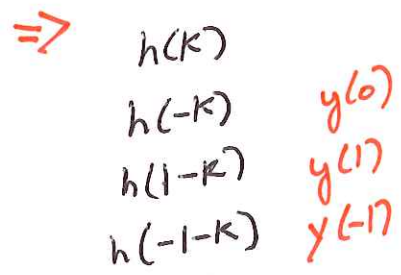 ⇒ h(K)
h(-K) y(0)
h(1-K) y(1)
h(-1-K) y(-1)